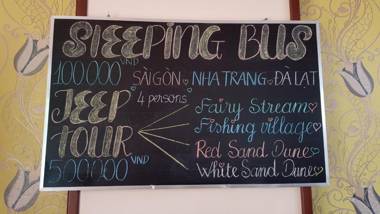 SLEEPING BUS
100000 VND
SÀIGÒN NHA TRANG ĐÀ LẠT
JEEP TOUR
4 persons
500000 VND
Fairy Stream
Fishing village
Red Sand Dune
White Sand Dune